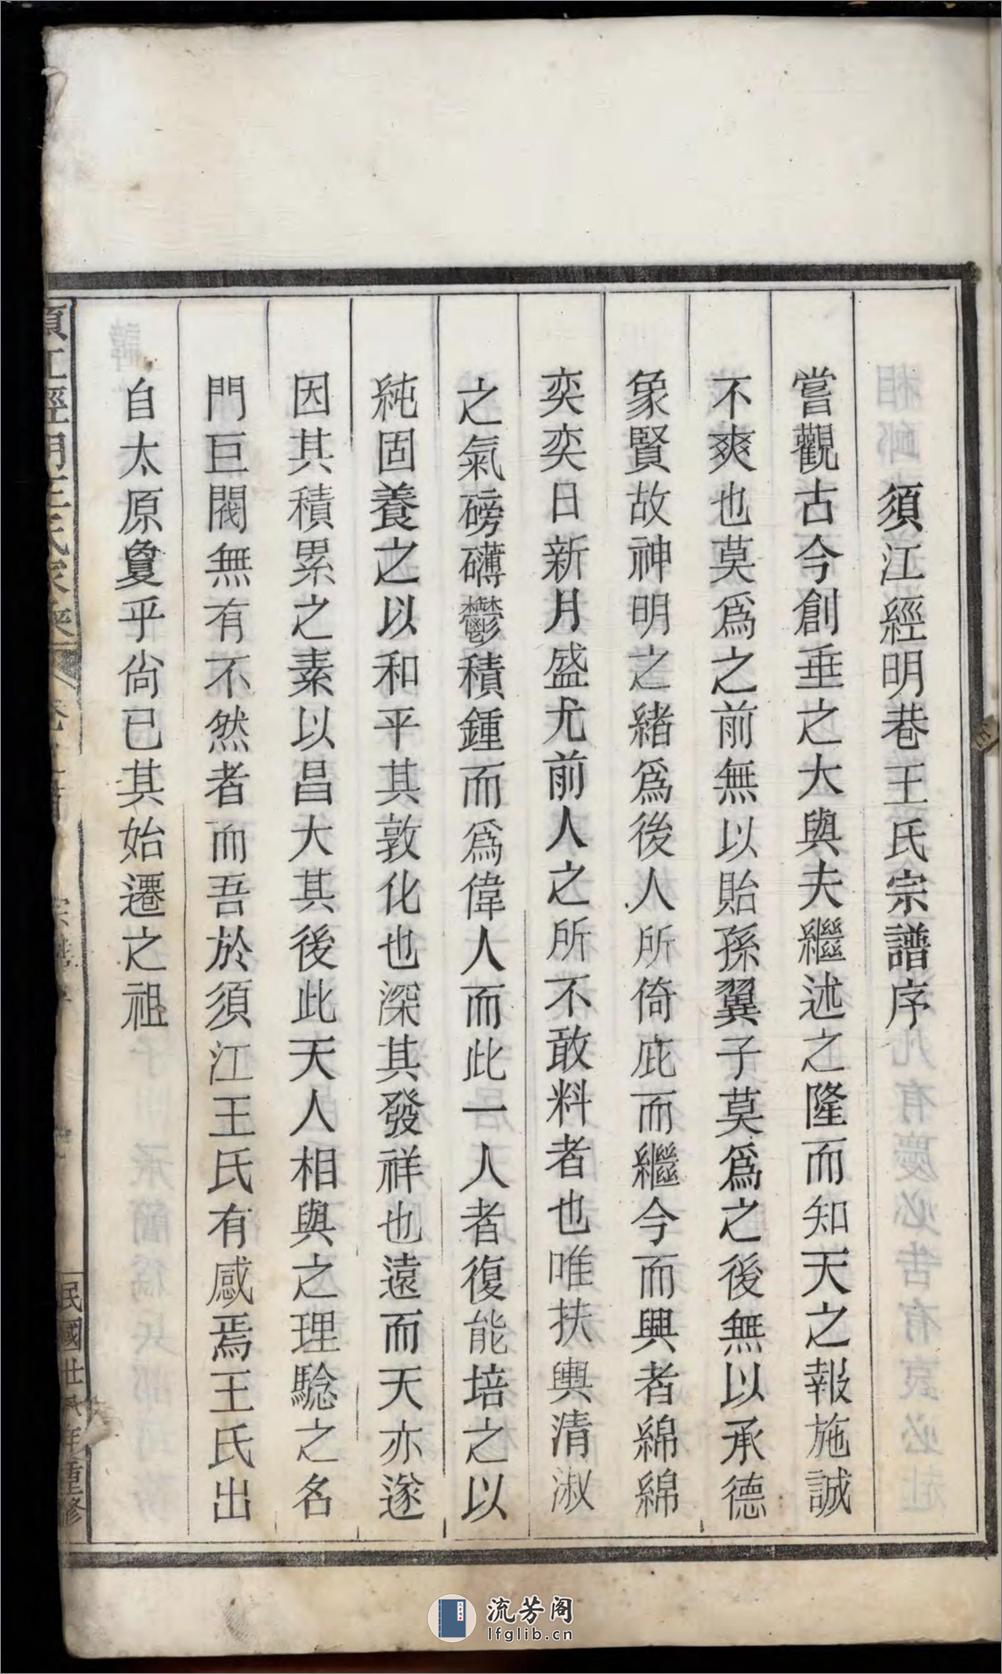 須江經明巷王氏宗譜序
嘗觀古今創垂之大與夫繼述之隆而知天之報施誠
不爽也莫爲之前無以貽孫翼子莫爲之後無以承德
象賢故神明之緒爲後人所倚庇而繼今而興者綿綿
奕奕日新月盛尤前人之所不敢料者也唯扶輿清淑
之氣磅礴鬱積鍾而爲偉人而此一人者復能培之以
純固養之以和平其敦化也深其發祥也遠而天亦遂
因其積累之素以昌大其後此天人相與之理驗之名
門巨閥無有不然者而吾於須江王氏有感焉王氏出
自太原敻乎尙已其始遷之祖
須江經明王氏家乘
民國廿 年重修
流芳阁
lfglib.cn